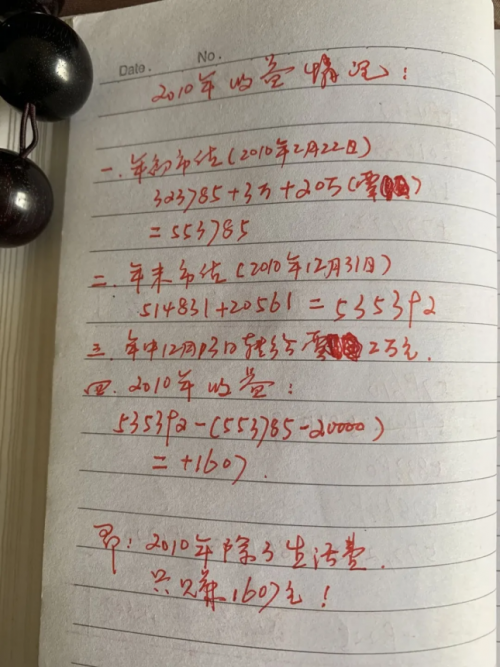 Date. No.
2010年收益情况:
一.年初市值(2010年2月22日)
323785+3万+20万(覃)
=553785
二.年末市值(2010年12月31日)
514831+20561=535392
三.年中12月13日转给覃2万元.
四.2010年收益:
535392-(553785-20000)
=+1607.
即:2010年除了生活费.
只只赚1607元!